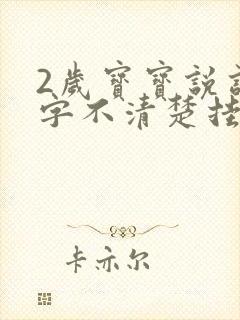 2歲寶寶說
字不清楚挂
卡亦尔